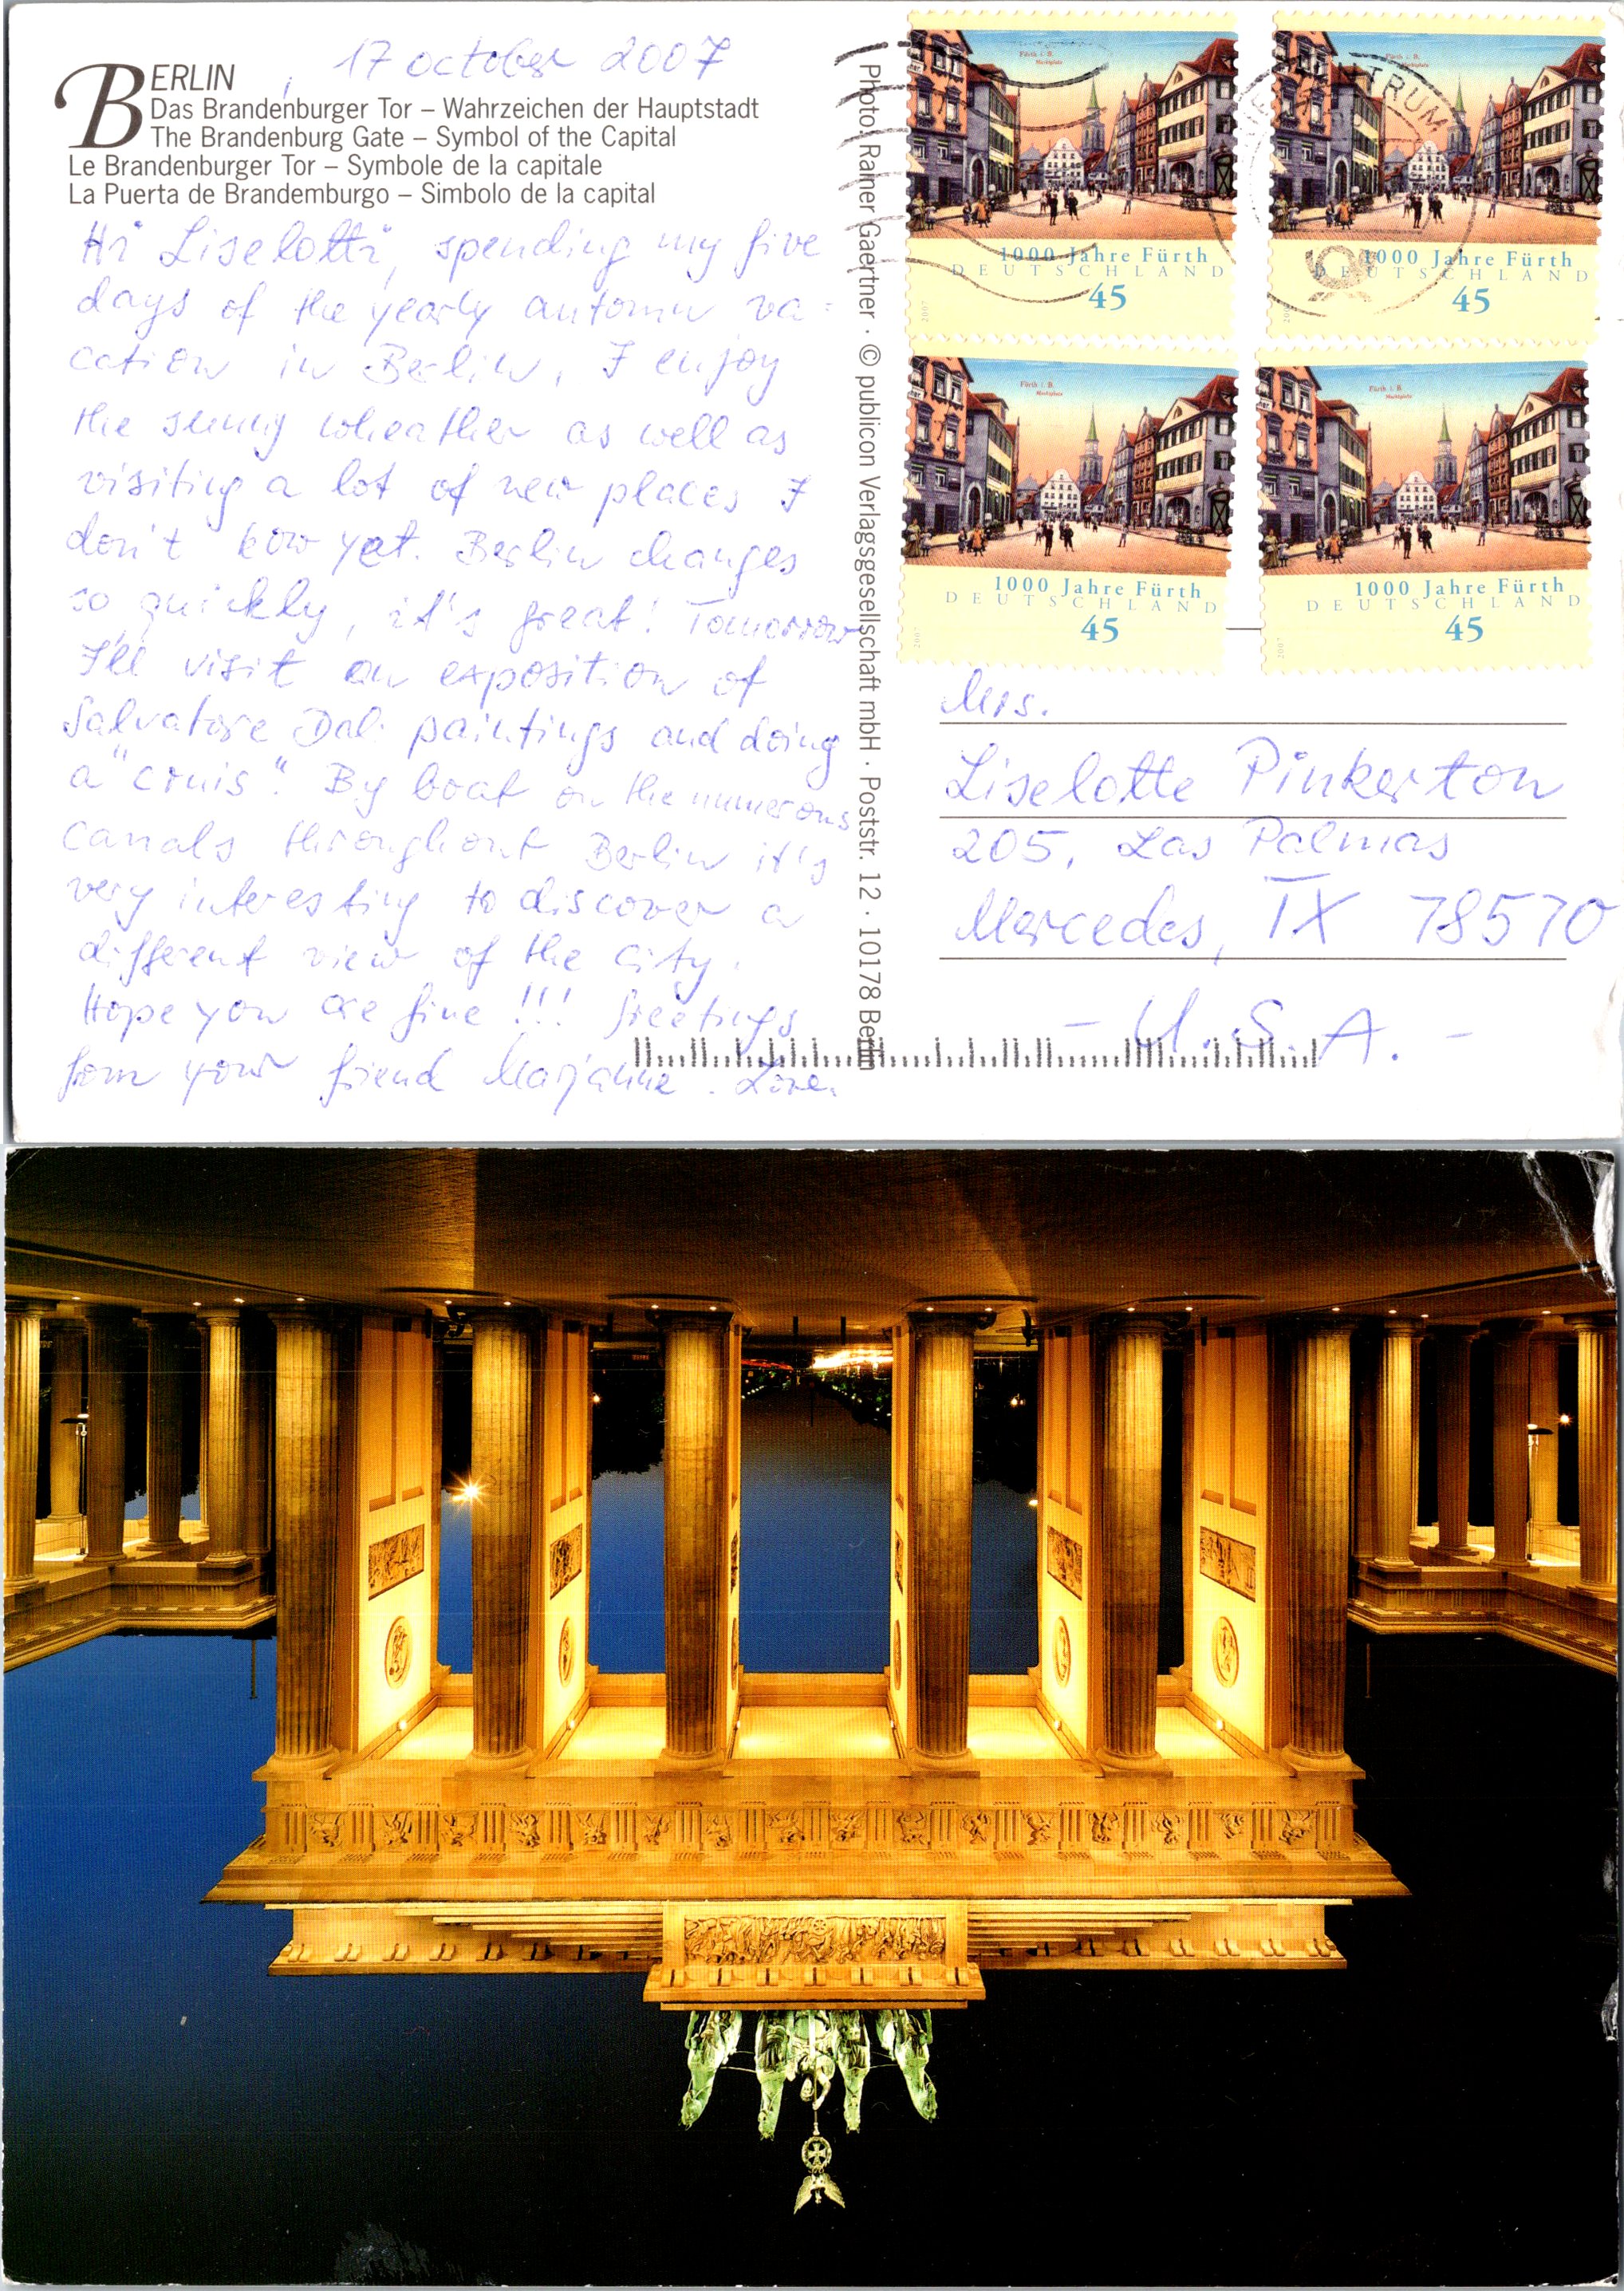 BERLIN, 17 october 2007
Das Brandenburger Tor – Wahrzeichen der Hauptstadt
The Brandenburg Gate – Symbol of the Capital
Le Brandenburger Tor – Symbole de la capitale
La Puerta de Brandemburgo – Simbolo de la capital
Hi Liselotti, spending my five
days of the yearly automn va=
cation in Berlin, I enjoy
the sunny wheather as well as
visiting a lot of new places I
don't kow yet. Berlin changes
so quickly, it's great! Tomorrow
I'll visit an exposition of
Salvatore Dali paintings and doing
a "cruis". By boat on the numerous
canals throughout Berlin it's
very interesting to discover a
different view of the city.
Hope you are fine!!! Greetings
form your friend Marjanne.
Photo: Rainer Gaertner · © publicon Verlagsgesellschaft mbH · Poststr. 12 · 10178 Berlin
Fürth i. B.
Marktplatz
1000 Jahre Fürth
DEUTSCHLAND
45
2007
Fürth i. B.
Marktplatz
1000 Jahre Fürth
DEUTSCHLAND
45
2007
Fürth i. B.
Marktplatz
1000 Jahre Fürth
DEUTSCHLAND
45
2007
Fürth i. B.
Marktplatz
1000 Jahre Fürth
DEUTSCHLAND
45
2007
Mrs.
Liselotte Pinkerton
205, Las Palmas
Mercedes, TX 78570
- U.S.A. -